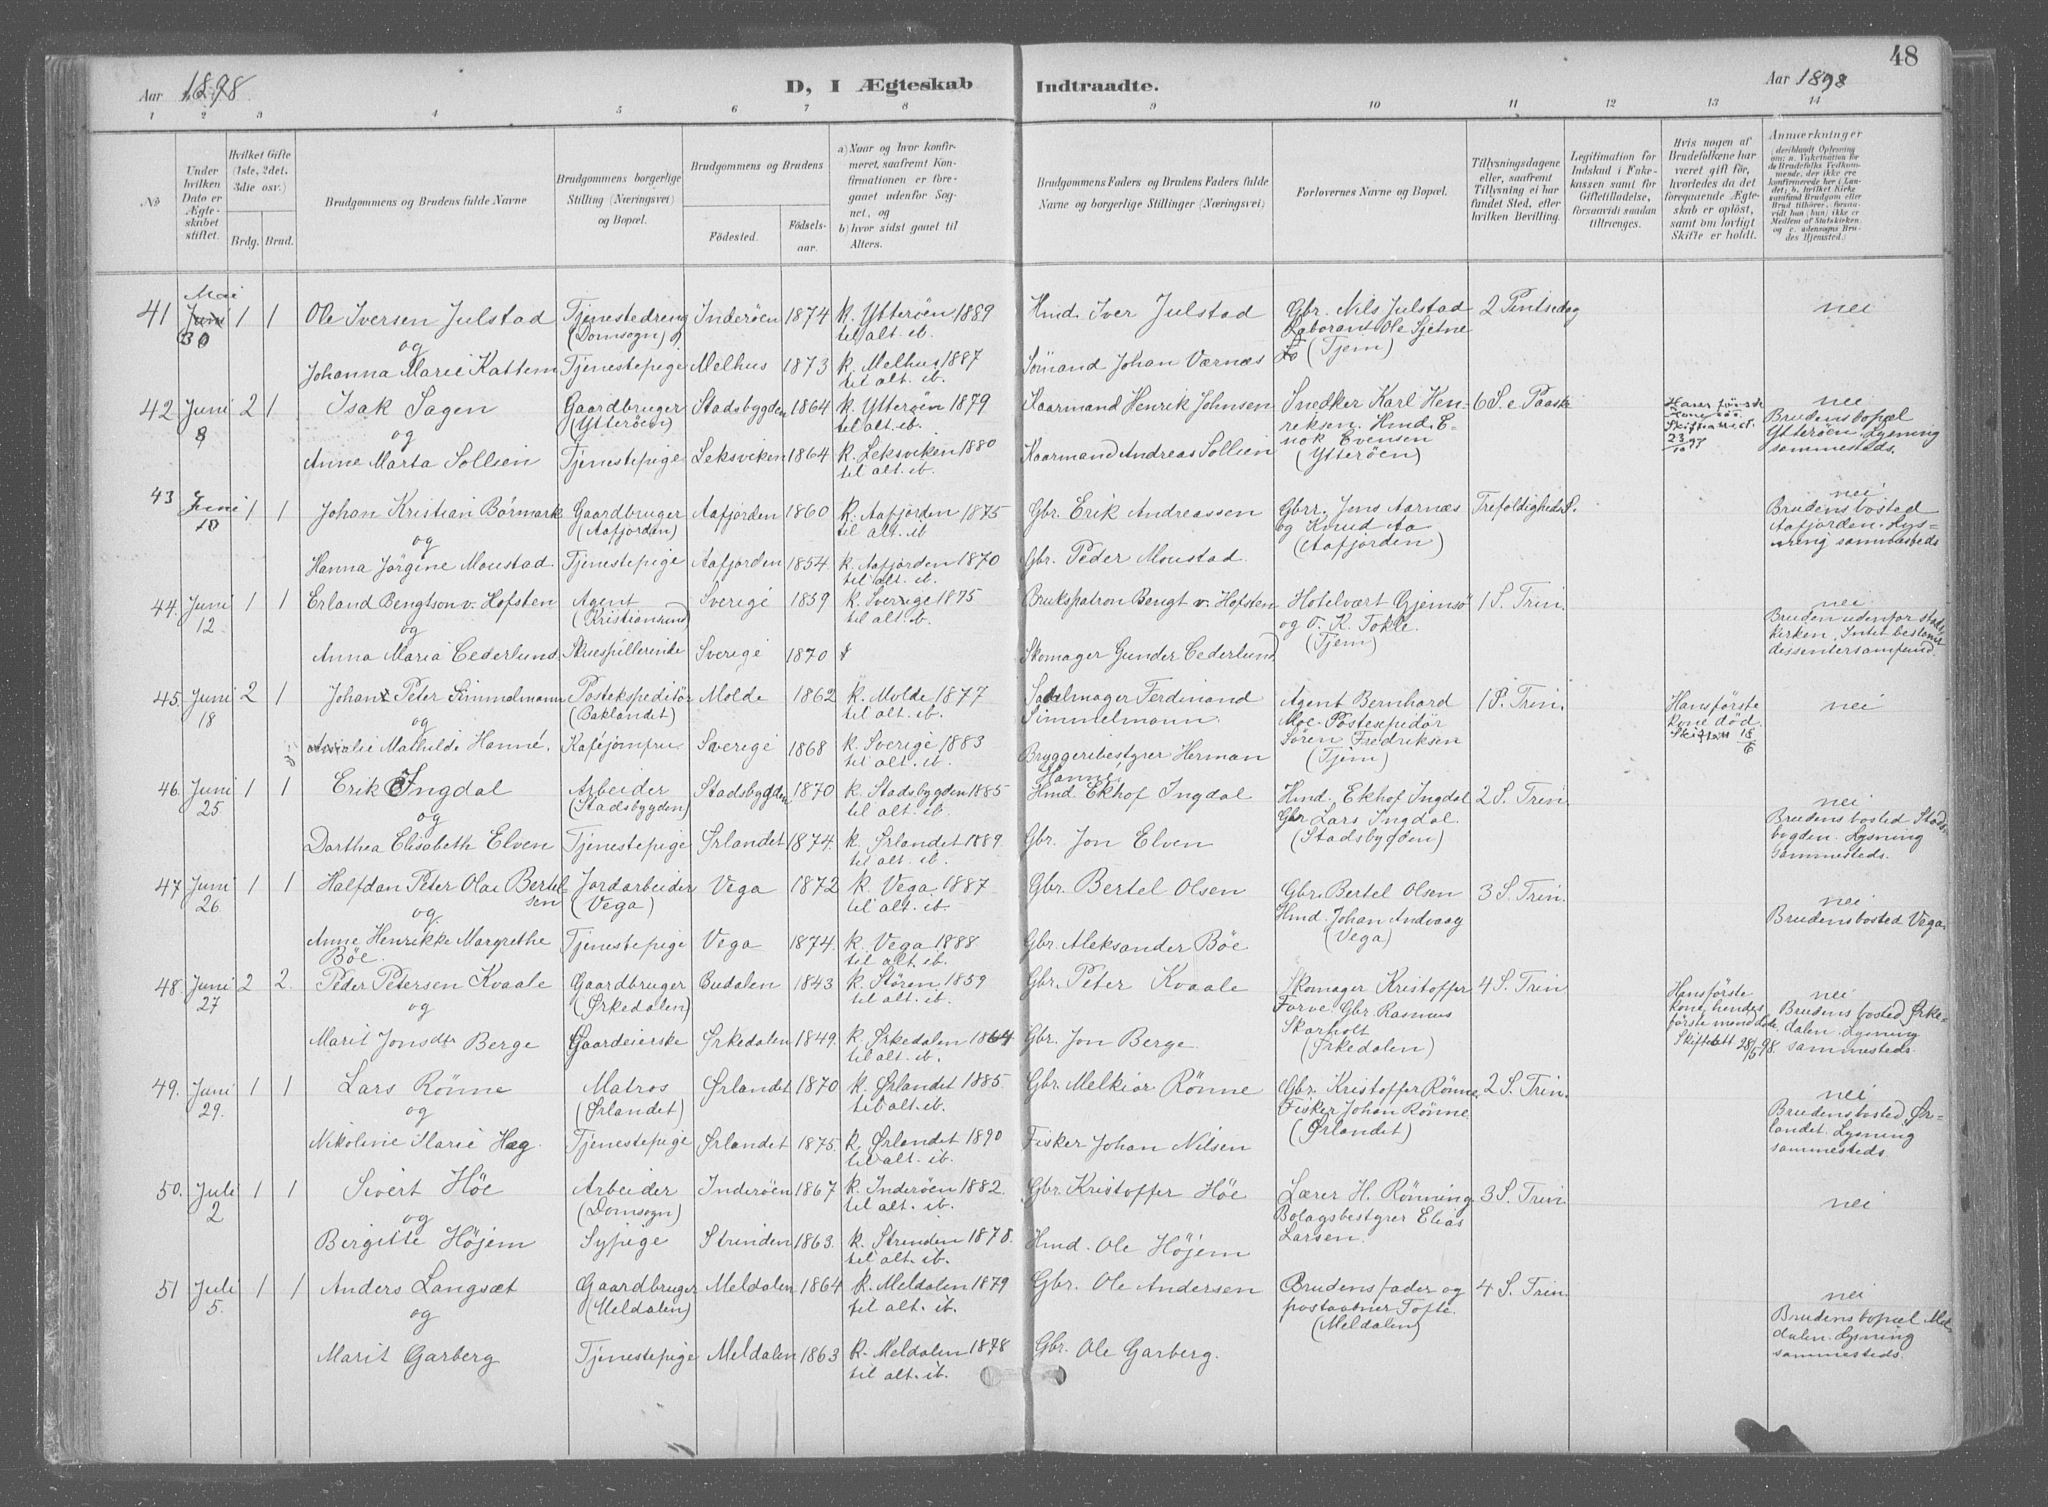 48
Aar 1898
D, I Ægteskab Indtraadte.
Aar 1898
1 2 3 4 5 6 7 8 9 10 11 12 13 14
No
Under hvilken Dato er Ægteskabet stiftet.
Hvilket Gifte (1ste, 2det, 3die osv.)
Brdg. Brud.
Brudgommens og Brudens fulde Navne
Brudgommens borgerlige Stilling (Næringsvei) og Bopæl.
Brudgommens og Brudens
Fødested. Fødselsaar.
a) Naar og hvor konfirmeret, saafremt Konfirmationen er foregaaet udenfor Sognet, og
b) hvor sidst gaaet til Alters.
Brudgommens Faders og Brudens Faders fulde Navne og borgerlige Stillinger (Næringsvei)
Forlovernes Navne og Bopæl.
Tillysningsdagene eller, saafremt Tillysning ei har fundet Sted, efter hvilken Bevilling.
Legitimation for Indskud i Enkekassen samt for Giftetilladelse, forsaavidt saadan tiltrænges.
Hvis nogen af Brudefolkene har været gift før, hvorledes da det foregaaende Ægteskab er opløst, samt om lovligt Skifte er holdt.
Anmærkninger
41 Mai 30 1 1 Ole Iversen Julstad Tjenestedreng (Domsogn) Inderöen 1874 k. Ytteröen 1889 til alt. ib. Hmd. Iver Julstad Gbr. Nils Julstad Laborant Ole Sjetne (Tjem) 2 Pintsedag nei
og
Johanna Marie Kattem Tjenestepige Melhus 1873 k. Melhus 1887 til alt. ib. Sömand Johan Værnæs
42 Juni 8 2 1 Isak Sagen Gaardbruger (Ytteröen) Stadsbygden 1864 k. Ytteröen 1879 til alt. ib. Kaarmand Henrik Johnsen Snedker Karl Henriksen. Hmd. Enok Evensen (Ytteröen) 6 S. e Paaske 23/10 97 nei Brudens bopæl Ytteröen. Lysning sammesteds.
og
Anne Marta Sollien Tjenestepige Leksviken 1864 k. Leksviken 1880 til alt. ib. Kaarmand Andreas Sollien
43 Juni 10 1 1 Johan Kristian Börmark Gaardbruger (Aafjorden) Aafjorden 1860 k. Aafjorden 1875 til alt. ib Gbr. Erik Andreassen Gbrr. Jens Aarnæs og Knud Aa (Aafjorden) Trefoldigheds S. nei. Brudens bosted Aafjorden. Lysning sammesteds
og
Hanna Jörgine Moustad Tjenestepige Aafjorden 1854 k. Aafjorden 1870 til alt. ib. Gbr. Peder Moustad
44. Juni 12 1 1 Erland Bengtson v. Hofsten Agent (Kristiansund) Sverige 1859 k. Sverige 1875 til alt. ib. Brukspatron Bengt v. Hofsten Hotelvært Gjemsö og O. K. Tokle. (Tjem) 1 S. Trin. nei Bruden udenfor statskirken. Intet bestemt dissentersamfund.
og
Anna Maria Cederlund Skuespillerinde Sverige 1870 Skomager Gunder Cederlund
45. Juni 18 2 1 Johan Peter Simmelmann Postekspeditör (Baklandet) Molde 1862 k. Molde 1877 til alt. ib. Sadelmager Ferdinand Simmelmann. Agent Bernhard Moe. Postexpidör Sören Fredriksen (Tjem) 1 S. Trin. Hans förste kone död. nei
og
Mathilde Hanné. Kaféjomfru Sverige 1868 k. Sverige 1883 til alt. ib. Bryggeribestyrer Herman Hanné
46. Juni 25 1 1 Erik Ingdal Arbeider (Stadsbygden) Stadsbygden 1870 k. Stadsbygden 1885 til alt. ib. Hmd. Ekhof Ingdal Hmd. Ekhof Ingdal Gbr Lars Ingdal. (Stadsbygden) 2 S. Trin. nei Brudens bosted Stadsbygden. Lysning sammesteds.
og
Dorthea Elisabeth Elven Tjenestepige Ørlandet 1874. k. Ørlandet 1889. til alt. ib. Gbr. Jon Elven
47 Juni 26 1 1 Halfdan Peter Olai Bertelsen Jordarbeider (Vega) Vega 1872 k. Vega. 1887 til alt. ib. Gbr. Bertel Olsen Gbr. Bertel Olsen Hmd. Johan Andvaag (Vega) 3 S. Trin. nei Brudens bosted Vega.
og
Anne Henrikke Margrethe Böe. Tjenestepige Vega 1874. k. Vega 1888 til alt. ib. Gbr. Aleksander Böe
48. Juni 27 2 2. Peder Petersen Kvaale Gaardbruger (Ørkedalen) Budalen 1843 k. Stören 1859 til alt. ib. Gbr. Peter Kvaale Skomager Kristoffer Forve. Gbr. Rasmus Skarholt (Ørkedalen) 4 S. Trin Hans förste kone, hendes förste mand döde. Skiftett 28/5 98. nei Brudens bosted Ørkedalen. Lysning sammesteds.
og
Marit Jonsdtr Berge Gaardeierske Ørkedalen 1849. k. Ørkedalen 1864 til alt. ib. Gbr. Jon Berge.
49. Juni 29. 1 1 Lars Rönne Matros (Ørlandet) Ørlandet 1870 k. Ørlandet 1885. til alt. ib. Gbr. Melkior Rönne Gbr. Kristoffer Rönne. Fisker Johan Rönne. (Ørlandet) 2 S. Trin. nei Brudens bosted Ørlandet. Lysning sammesteds.
og
Nikoline Ilarie Hæg. Tjenestepige Ørlandet 1875. k. Ørlandet 1890 til alt. ib. Fisker Johan Nilsen
50. Juli 2 1 1 Sivert Höe Arbeider (Domsogn) Inderöen 1867 k. Inderöen 1882. til alt. ib. Gbr. Kristoffer Höe Lærer H. Rönning Bolagsbestyrer Elias Larsen. 3 S. Trin. nei
og
Birgitte Höjem Sypige Strinden 1863. k. Strinden 1878. til alt. ib. Hmd. Ole Höjem
51 Juli 5. 1 1 Anders Langsæt Gaardbruger (Meldalen) Meldalen 1864 k. Meldalen 1879 til alt. ib. Gbr. Ole Andersen Brudens fader og postaabner Tofte. (Meldalen) 4 S. Trin. nei Brudens bopæl Meldalen. Lysning sammesteds.
og
Marit Garberg Tjenestepige Meldalen 1863 k. Meldalen 1878 til alt. ib. Gbr. Ole Garberg.